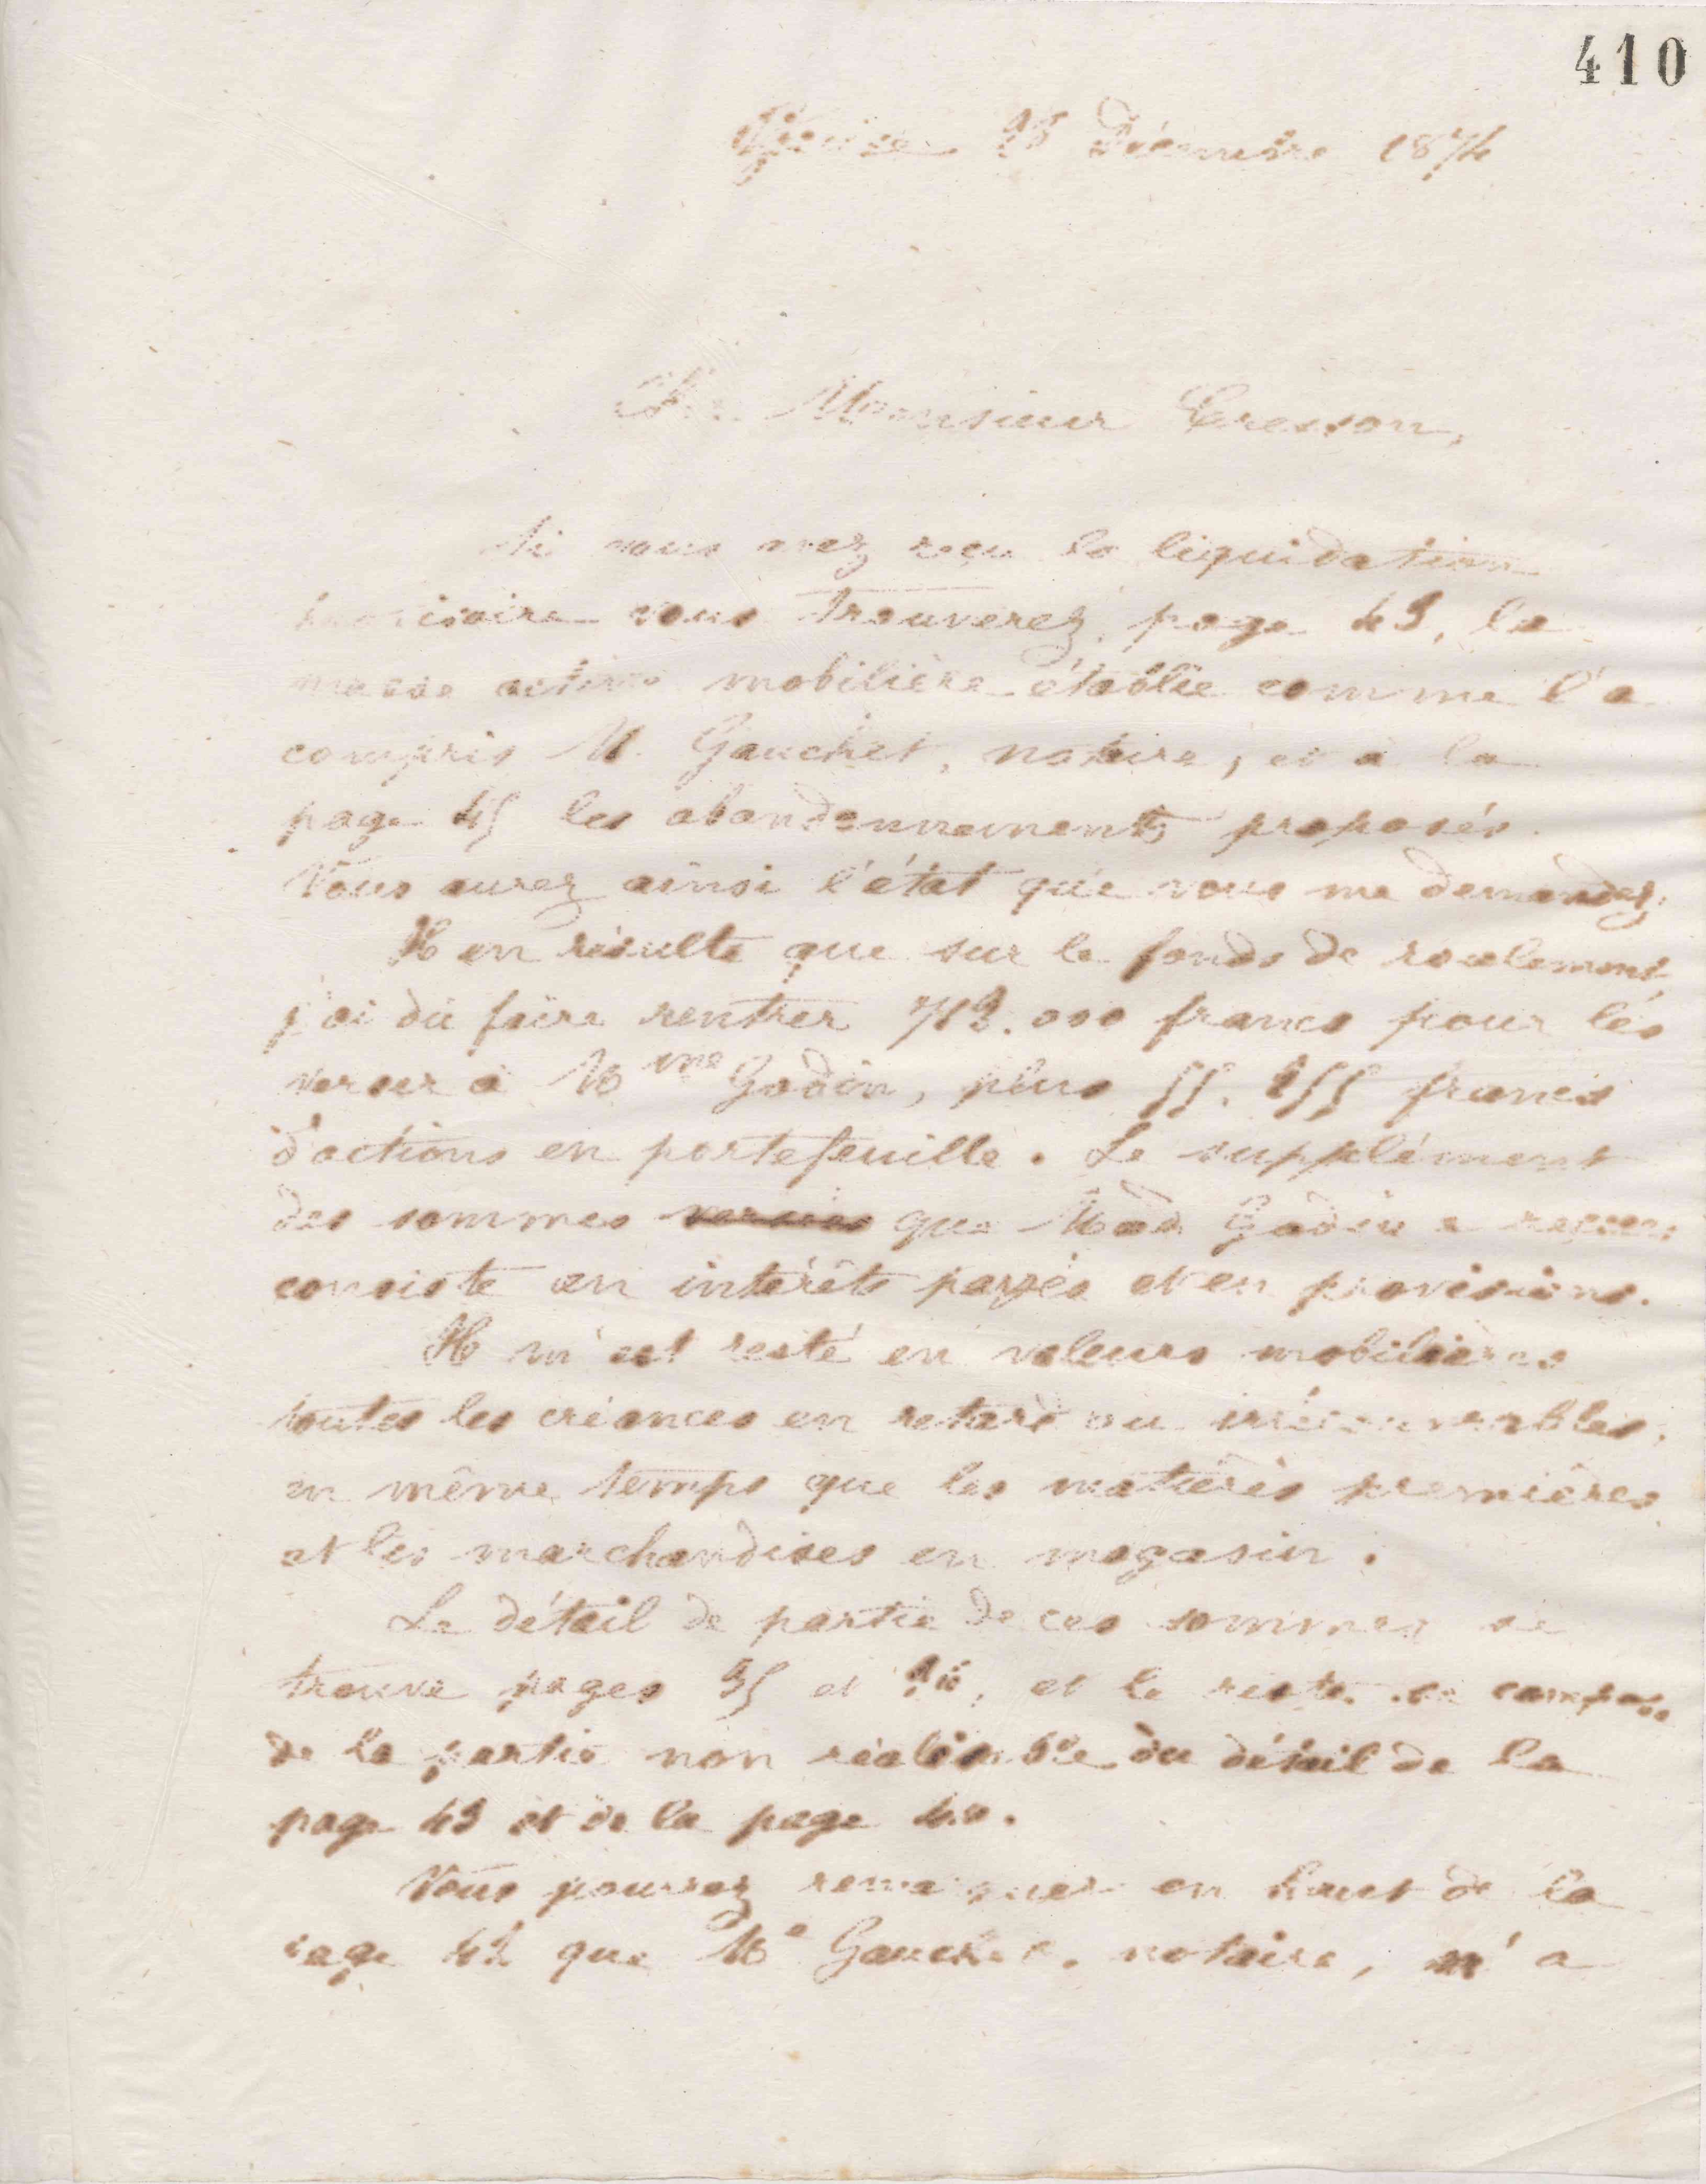 410
Décembre 1874
Monsieur Cresson,
Si vous avez reçu la liquidation
vous trouverez, page 43, la
masse active mobilière établie comme l'a
compris M. Gauchet, notaire, et à la
page 45 les abandonnements proposés.
Vous aurez ainsi l'état que vous me demandez.
Il en résulte que sur le fonds de roulement
j'ai dû faire rentrer 713.000 francs pour les
verser à Mme Godin, plus francs
d'actions en portefeuille. Le supplément
des sommes versées que Mad. Godin a reçues
consiste en intérêts payés et en provisions.
Il m'est resté en valeurs mobilières
toutes les créances en retard ou irrécouvrables,
en même temps que les matières premières
et les marchandises en magasin.
Le détail de partie de ces sommes se
trouve pages 35 et , et le reste se compose
de la partie non réalisable du détail de la
page 43 et de la page
Vous pourrez remarquer en haut de la
page 42 que Me Gauchet, notaire, m'a